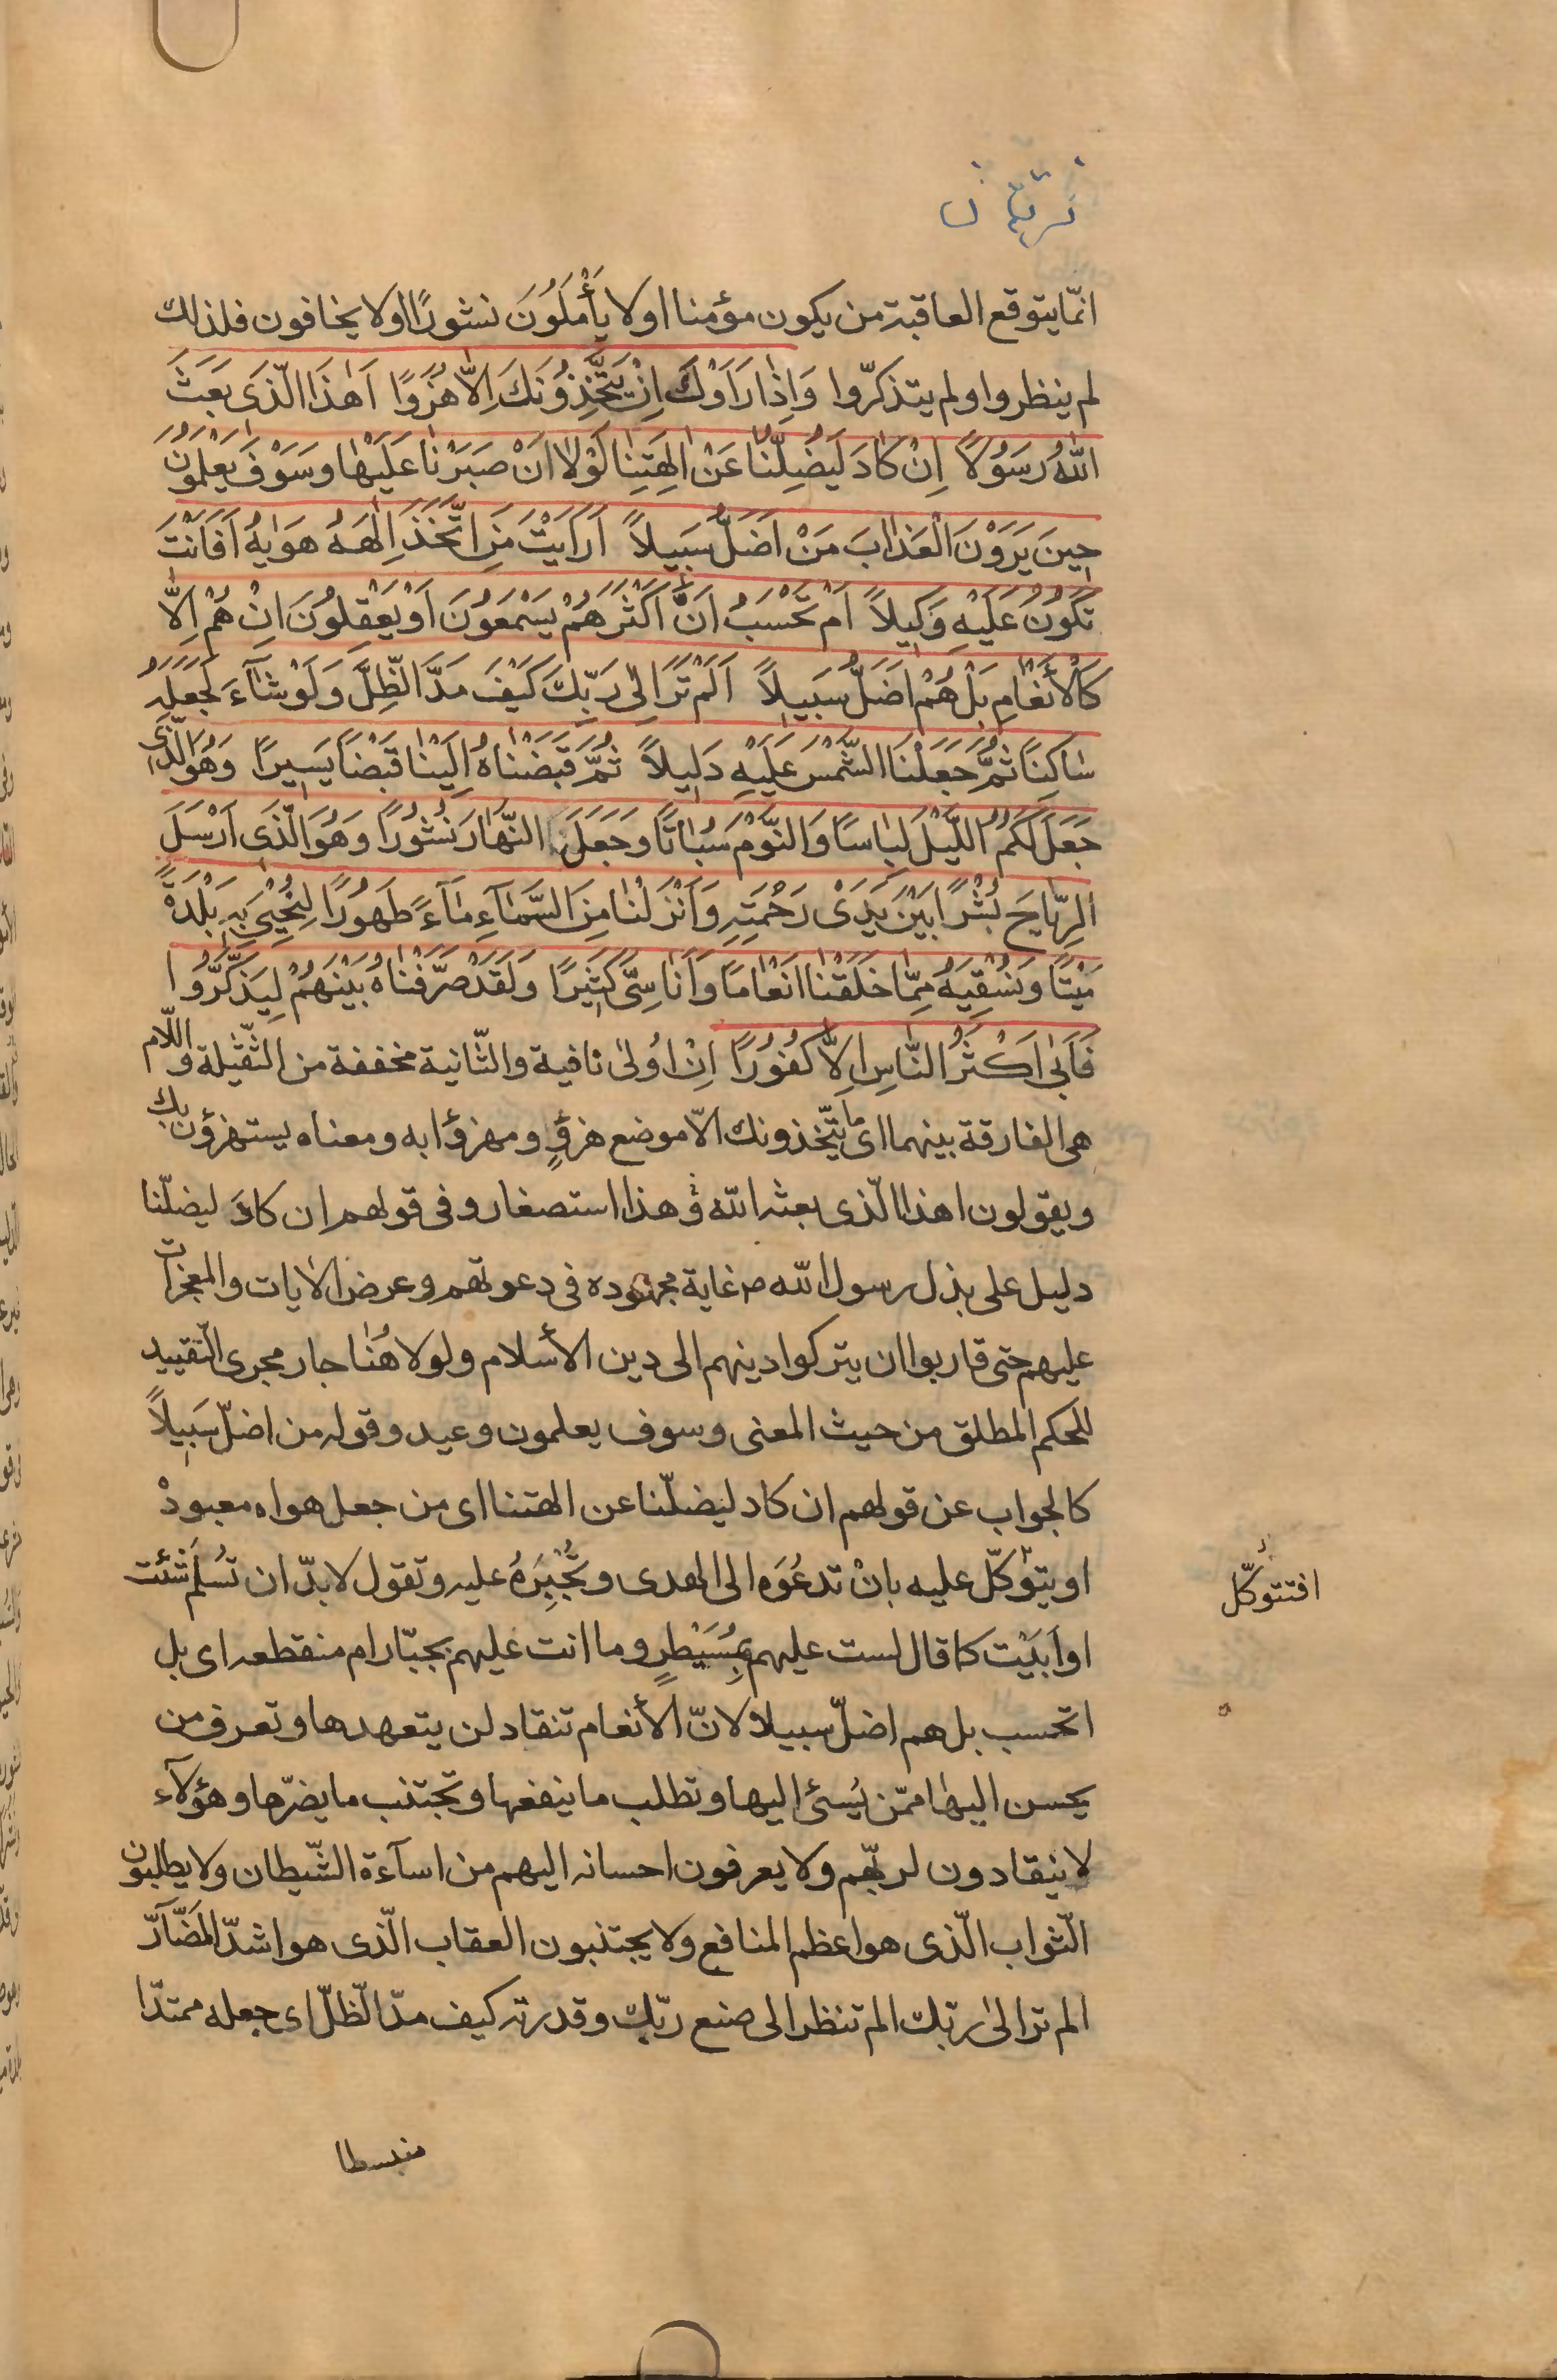 انّما يتوقع العاقبة من يكون مؤمنا اولا يَأْمَلُونَ نشورًا اولا يخافون فلذلك
لم ينظروا ولم يتذكرّوا وَاِذٰا رَاَوْكَ اِنْ يَتَّخِذُونَكَ اِلّٰا هُزُوًا اَهٰذَا الّذَى بَعَثَ
اللّٰهُ رَسَوُلًا اِنْ كٰادَ لَيُضِلُّنٰا عَنْ اٰلِهَتِنٰا لَوْلٰا اَنْ صَبَرْنٰا عَلَيْهٰا وَسَوْفَ يَعْلَمُونَ
حِينَ يَرَوْنَ الْعَذٰابَ مَنْ اَضَلُّ سَبَيلًا اَرَاَيْتَ مَنِ اتَّخَذَ اِلٰهَهُ هَوٰيهُ اَفَاَنْتَ
تَكُونُ عَلَيْهِ وَكَيلًا اَمْ تَحْسَبُ اَنَّ اَكْثَرَهُمْ يَسْمَعَوُنَ اَوْ يَعْقِلُونَ اِنْ هُمْ اِلّٰا
كَالْأَنْعٰامِ بَلْ هُمْ اَضَلُّ سَبَيلًا اَلَمْ تَرَ اِلٰى رَبِّكَ كَيْفَ مَدَّ الّظِلَّ وَلَوْ شٰآءَ لَجَعَلَهُ
سٰاكِنًا ثُمَّ جَعَلْنَا الشَّمْسَ عَلَيْهِ دَلِيلًا ثُمَّ قَبَضْنٰاهُ اِلَيْنٰا قَبْضًا يَسِيرًا وَهُوَ الّذَى
جَعَلَ لَكُمُ اللَّيْلَ لِبٰاسًا وَالنَّوْمَ سُبٰاتًا وَجَعَلَ النَّهٰارَ نُشُورًا وَهُوَ الّذَى اَرْسَلَ
الرِّيٰاحَ بُشْرًا بَيْنَ يَدَىْ رَحْمَتِهِ وَاَنْزَلْنٰا مِنَ السَّمٰآءِ مٰآءً طَهُورًا لِنُحْيِىَ بِهِ بَلْدَةً
مَيْتًا وَنُسْقِيَهُ مِمّٰا خَلَقْنٰا اَنْعٰامًا وَاَنٰاسِىَّ كَثِيرًا وَلَقَدْ صَرَّفْنٰاهُ بَيْنَهُمْ لِيَذَّكَّرُوا
فَاَبٰى اَكْثَرُ النّٰاسِ اِلّٰا كُفُورًا اِنْ اُولىٰ نافية والثّانية مخففة من الثّقيلة واللّام
هى الفارقة بينهما اى ما يتّخذونك الّا موضع هزؤٍ ومهزؤا به ومعناه يستهزؤن بك
ويقولون اهذا الّذى بعثه الله وهذا استصغار وفى قولهم ان كادَ ليضلّنا
دليل على بذل رسول الله ص غاية مجهوده فى دعوتهم وعرض الايات والمعجزات
عليهم حتى قاربوا ان يتركوا دينهم الى دين الأسلام ولولا هُنٰا جار مجرى التّقييد
للحكم المطلق من حيث المعنى وسوف يعلمون وعيد وقوله من اضلّ سَبِيلًا
كالجواب عن قولهم ان كاد ليضلّنا عن الهتنا اى من جعل هواه معبودْ
او يتوكّل عليه بانْ تدعُوَه الى الهدى وتُجْبِرَهُ عليه وتقول لا بدّ ان تسُلم شئت
او اَبَيْت كما قال لست عليهم بِمُسَيْطِرٍ وما انت عليهم بجبّار ام منقطعه اى بل
اتحسب بل هم اضلّ سبيلا لانّ الأنعام تنقاد لمن يتعهدها وتعرف من
يحسن اليهٰا ممّن يُسئ اليها وتطلب ما ينفعها وتجتنب ما يضرّها وهؤلآء
لا ينقادون لربّهم ولا يعرفون احسانه اليهم من اسآءة الشّيطان ولا يطلبون
الّثواب الّذى هو اعظم المنافع ولا يجتنبون العقاب الّذى هو اشدّ المَضّآرّ
الم تر الىٰ ربّك الم تنظر الى صنع ربّك وقدرته كيف مدّ الّظلّ اى جعله ممتدّا
منبسطا
افتتوكّل